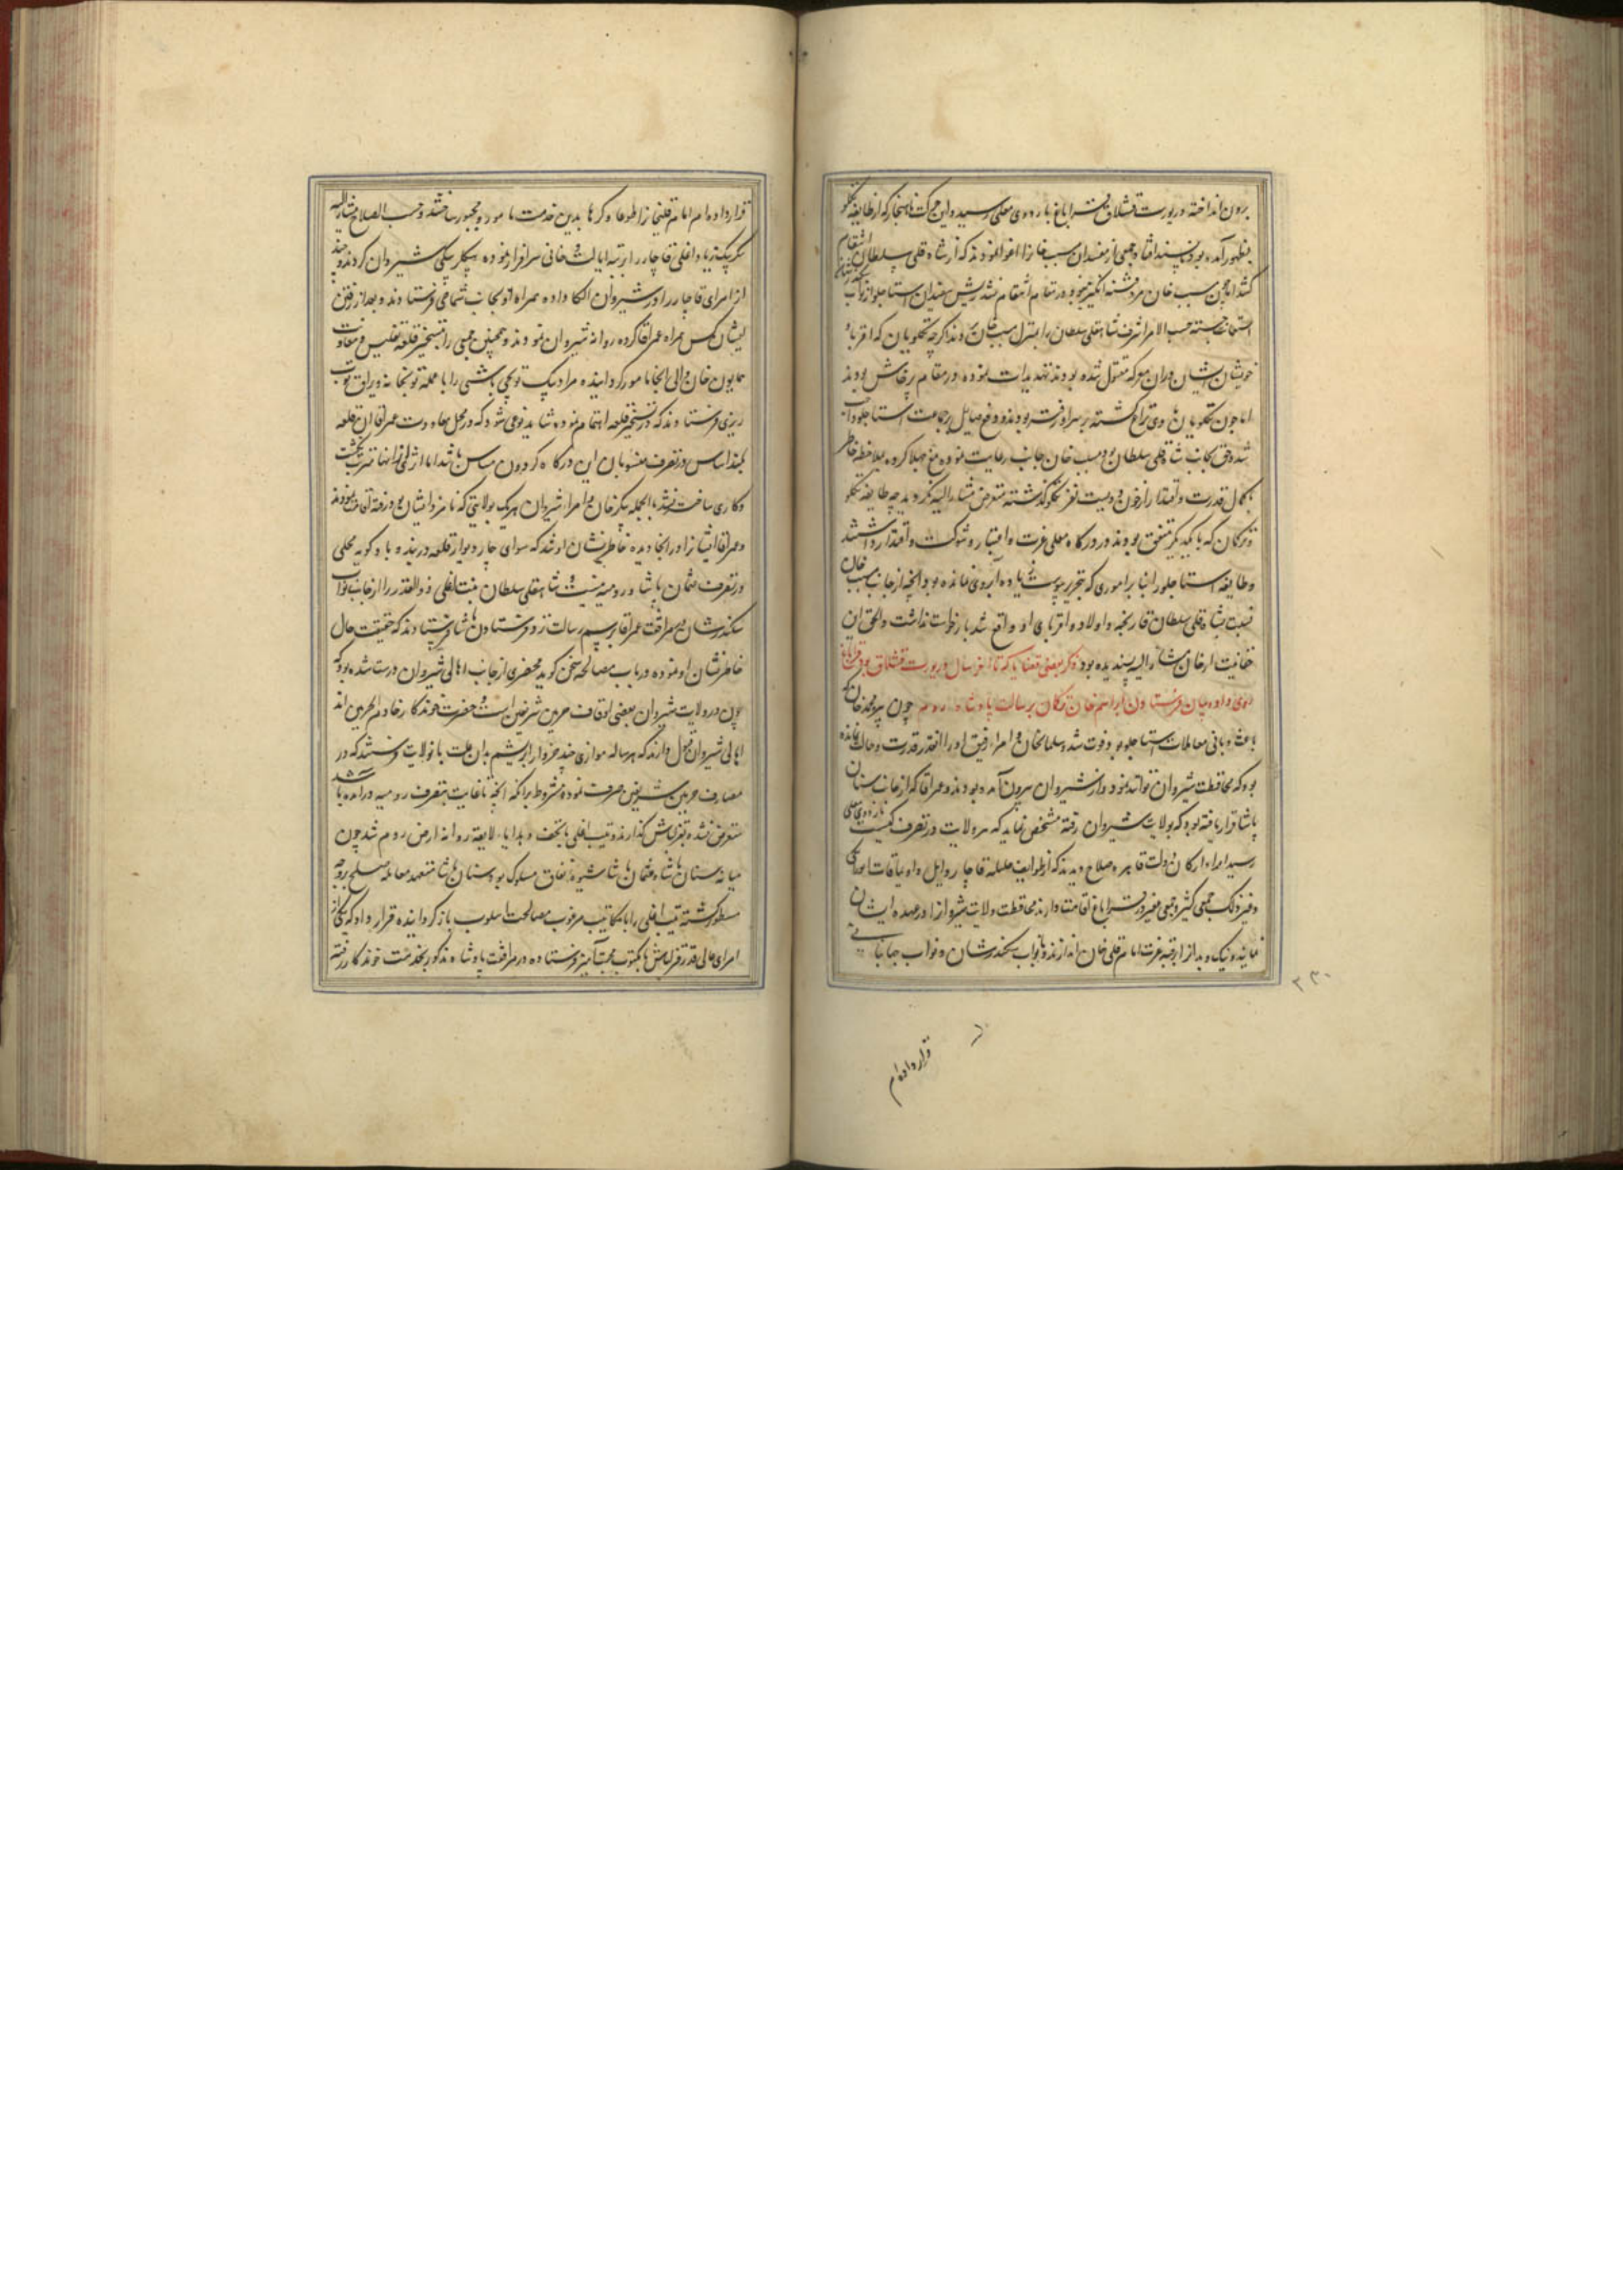 برون انداخته در یورت قشلاق قراباغ باردوی معلی رسید و این حرکت ناهنجار که از طایفه تکلو
بظهور آمده بود ناپسند افتاد و جمعی از مفسدان مسیب خانرا اغوا نمودند که از شاه قلی سلطان انتقام
کشد اما چون مسیب خان مرد فتنه انگیز نبود در مقام انتقام نشد ریش سفیدان استاجلو از نواب
استعانت جسته حسب الامر اشرف شاهقلی سلطان را بمنزل مسیب خان بردند اگرچه تکلویان که اقربا و
خویشان ایشان در ان معرکه مقتول شده بودند تهدیدات نموده در مقام پرخاش بودند
اما چون تکلویان
شده و حق بجانب شاه قلی سلطان بود مسیب خان جانب رعایت نموده منع جهلا کرده بملاحظه خاطر
بکمال قدرت و اقتدار از خون دویست نفر تکلو گذشته متعرض مشار الیه نگردید چه طایفه تکلو
و ترکمان که با یکدیگر متفق بودند در درگاه معلی عزت و اعتبار و شوکت و اقتدار داشتند
و طایفه استاجلو را بنابر اموری که بتحریر پیوست زیاده آبروی نمانده بود و آنچه از جانب مسیب خان
نسبت بشاه قلی سلطان قارنجه و اولاد و اقربای او واقع شد بازخواست نداشت و الحق این
حقانیت از خان مشار الیه پسندیده بود ذکر بعضی قضایا که تا آخر سال در یورت قشلاق قراباغ
روی داد و بیان فرستادن ابراهیم خان ترکمان برسالت پادشاه روم چون پیره محمد خان که
باعث و بانی معاملات استاجلو بود فوت شد سلمان خان و امراء رفیق او را آنقدر قدرت و حالت نمانده
بود که محافظت شیروان توانند نمود و از شیروان بیرون آمده بودند و عمر آقا که از جانب سنان
پاشا قرار یافته بود که بولایت شیروان رفته مشخص نماید که هر ولایت در تصرف کیست باردوی معلی
رسید امراء و ارکان دولت قاهره صلاح دیدند که از طوایف جلیله قاجار
جمعی کثیر و جمعی غفیر در قراباغ اقامت دارند محافظت ولایت شیروانرا در عهده ایشان
نمایند و نیک و بد آنرا برقبه عزت امام قلی خان اندازند و نواب سکندرشان و نواب جهانبانی
۳۳۰
قرار داده ام
قرار داده امام قلیخانرا طوعا و کرها بدین خدمت مامور و مجبور ساختند و حسب الصلاح مشار الیه
بیک زیاد اغلی قاجار را برتبه ایالت و خانی سرافراز نموده بیکلربیکی شیروان کردند و چند
از امرای قاجار را در شیروان الکا داده همراه او بجانب شماخی فرستادند و بعد از رفتن
ایشان کس همراه عمر آقا کرده روانه شیروان نمودند و همچنین جمعی را بتسخیر قلعه تفلیس و معاونت
سمایون خان والی آنجا مامور گردانیده مراد بیک توپچی باشی را با عمله توپخانه و یراق توپ
ریزی فرستادند که در تسخیر قلعه اهتمام نموده شاید نوعی شود که در محل معاودت عمر آقا ان قلعه
بلند اساس در تصرف منسوبان این درگاه گردون مماس باشد اما اثری از انها مترتب نگشت
و کاری ساخته نشد بالجمله بیکر خان و امراء شیروان هر یک بولایتی که نامزد ایشان بود رفته اقامت نمودند
و عمر آقا انتیازا در آنجا دیده خاطرنشان او شد که سوای چار دیوار قلعه دربند و بادکوبه محلی
در تصرف عثمان پاشا و رومیه نیست و شاهقلی سلطان بنت اغلی ذوالقدر را از جانب نواب
سکندرشان بمرافقت عمر آقا برسم رسالت نزد فرستادن پاشا فرستادند که حقیقت حال
خاطرنشان او نموده در باب مصالحه سخن گوید محضری از جانب اهالی شیروان درست شده بود که
چون در ولایت شیروان بعضی اوقاف حرمین شریفین است و حضرت خوندکار خادم الحرمین اند
اهالی شیروان قبول دارند که هر ساله موازی چند خروار ابریشم بدان علت بانولایت فرستند که در
مصارف حرمین شریفین صرف نموده مشروط برانکه آنچه تا غایت بتصرف رومیه درآمده باشد
متعرض نشده بقزلباش گذارند و بنت اغلی با تحف و هدایا لایقه روانه ارض روم شد چون
میانه سنان پاشا و عثمان پاشا شیوه نفاق مسلوک بود سنان پاشا متعهد معامله صلح بروجه
مسطور گشته بنت اغلی را با مکاتیب مرغوب مصالحت اسلوب باز گردانیده قرار داد که یکی از
امرای عالی قدر قزلباش با مکتوب محبت آمیز فرستاده در مرافقت پادشاه مذکور بخدمت خوندکار رفته